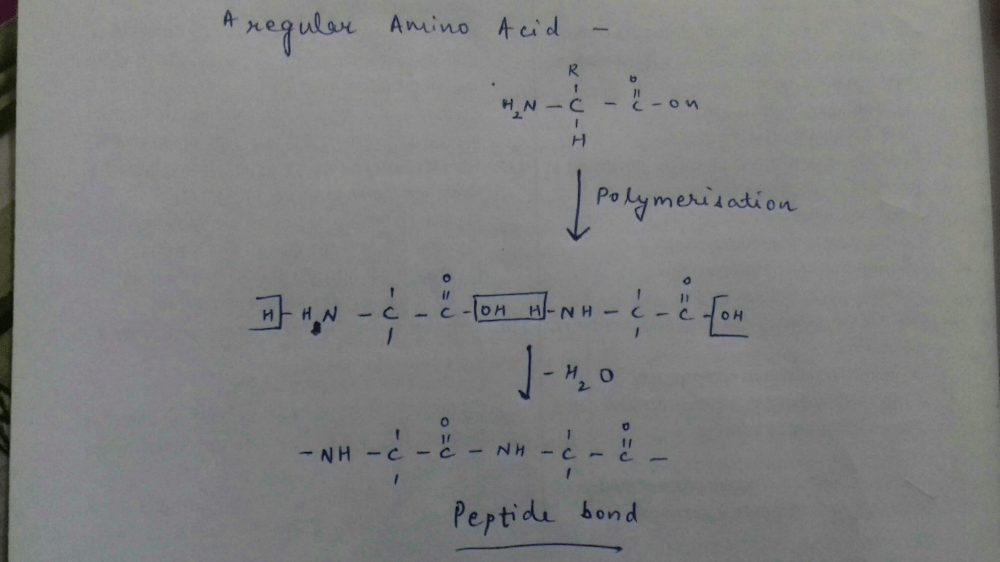 A regular Amino Acid -
R O
H2N - C - C - OH
H
Polymerisation
O O
H - H N - C - C - OH H - NH - C - C - OH
- H2O
O O
- NH - C - C - NH - C - C -
Peptide bond